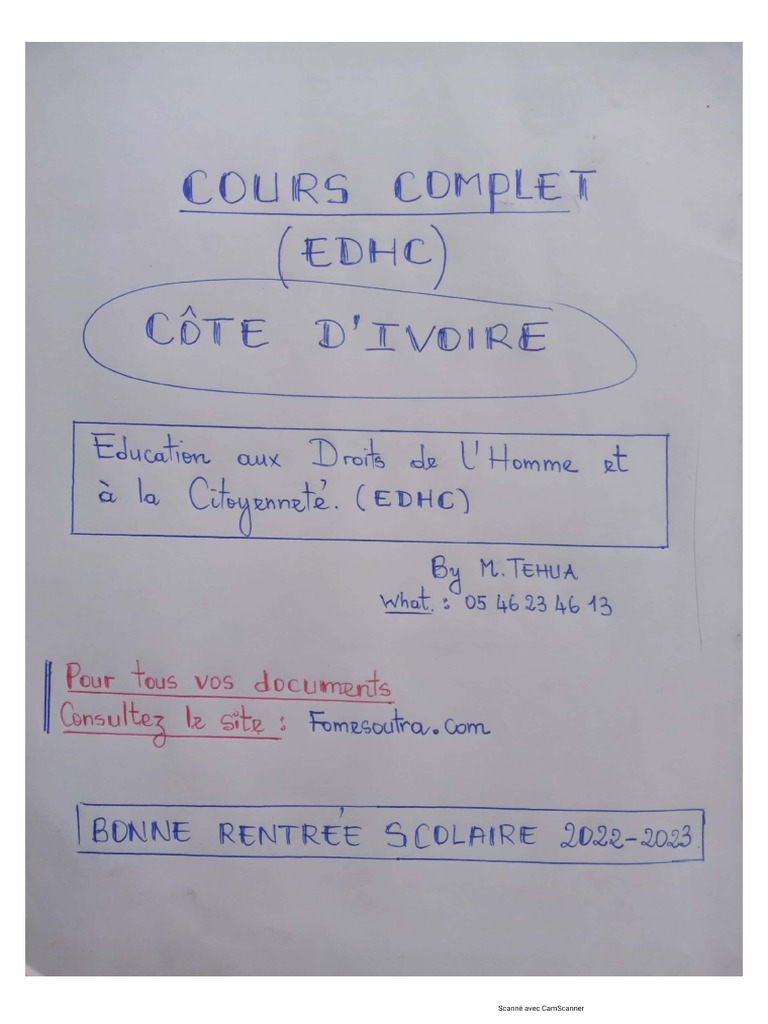 COURS COMPLET
(EDHC)
CÔTE D'IVOIRE
Education aux Droits de l'Homme et
à la Citoyenneté. (EDHC)
By M. TEHUA
What. : 05 46 23 46 13
Pour tous vos documents
Consultez le site : Fomesoutra.com
BONNE RENTRÉE SCOLAIRE 2022-2023.
Scanné avec CamScanner